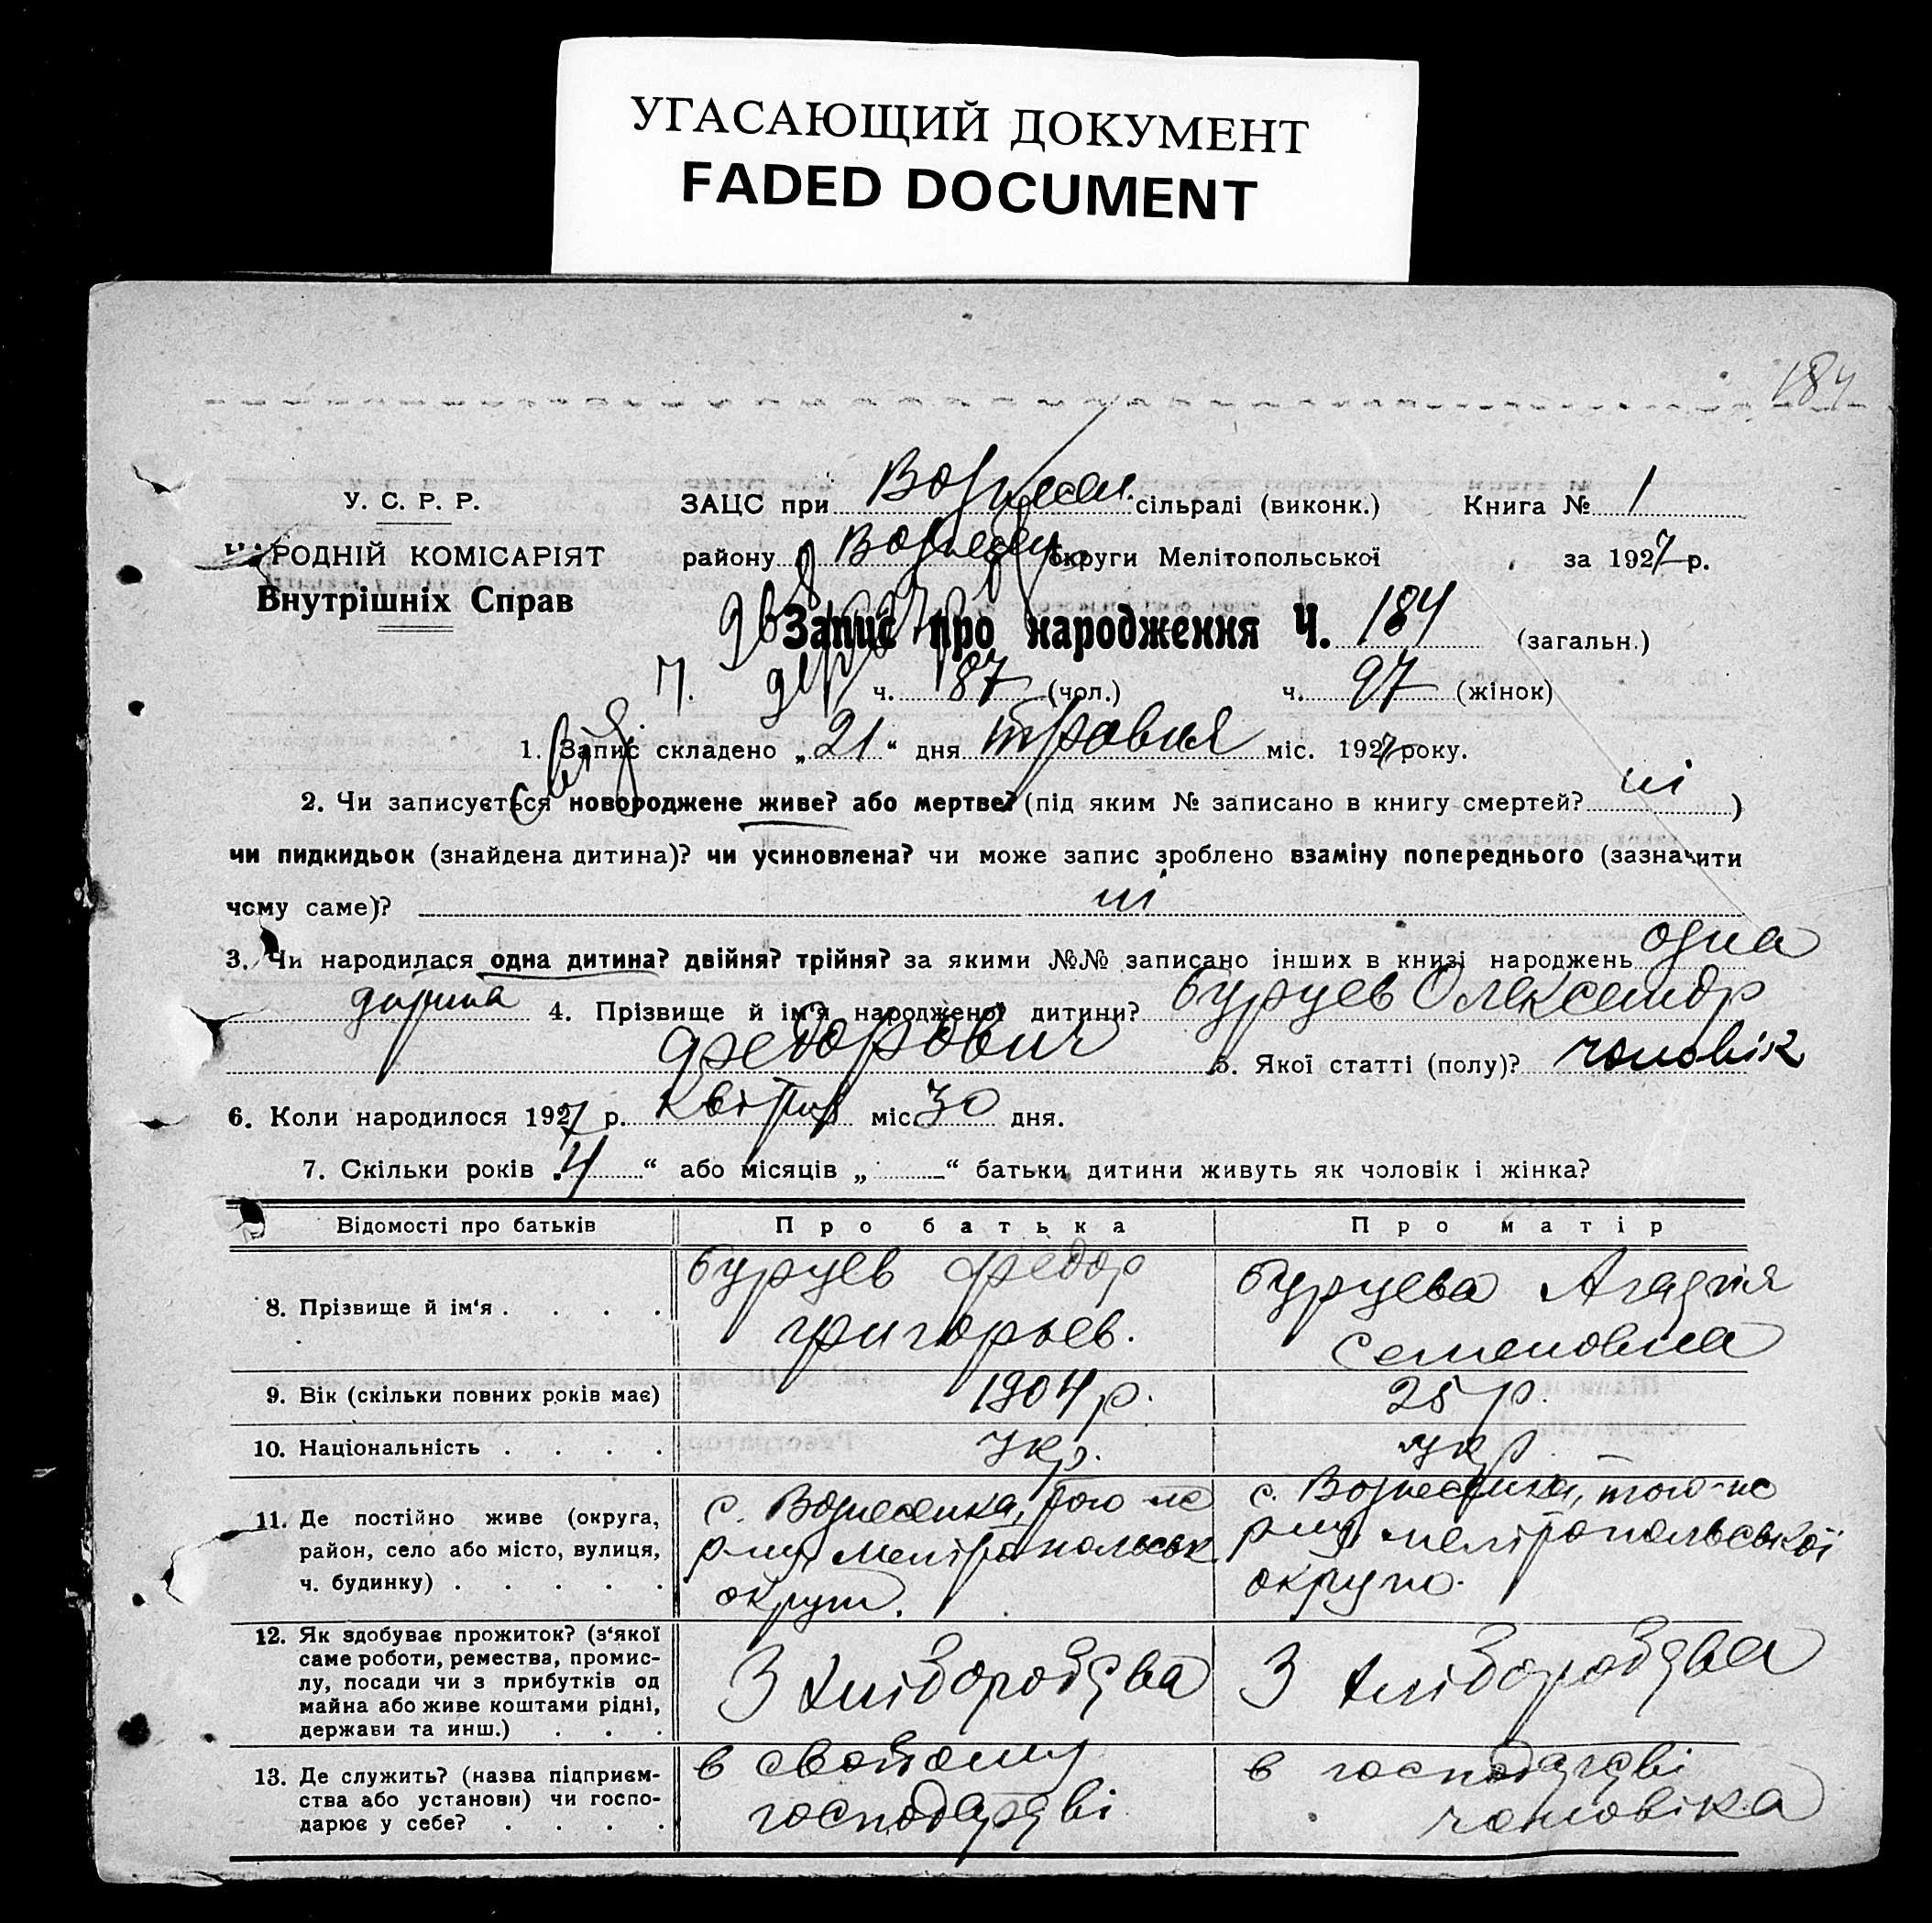 УГАСАЮЩИЙ ДОКУМЕНТ
FADED DOCUMENT
184
У. С. Р. Р.
РОДНІЙ КОМІСАРІЯТ
Внутрішніх Справ
ЗАЦС при Вознесен. сільраді (виконк.) Книга № 1
району Вознесен. округи Мелітопольської за 1927 р.
Запис про народження Ч. 184 (загальн.)
ч. 87 (чол.) ч. 97 (жінок)
1. Запис складено „21“ дня травня міс. 1927 року.
2. Чи записується новороджене живе? або мертве? (під яким № записано в книгу смертей? ні )
чи пидкидьок (знайдена дитина)? чи усиновлена? чи може запис зроблено взаміну попереднього (зазначити
чому саме)? ні
3. Чи народилася одна дитина? двійня? трійня? за якими №№ записано інших в книзі народжень одна
дитина 4. Прізвище й ім'я народженої дитини? Бурцев Олександр
Федорович 5. Якої статті (полу)? чоловік
6. Коли народилося 1927 р. квітня міс. 30 дня.
7. Скільки років „4“ або місяців „ “ батьки дитини живуть як чоловік і жінка?
Відомості про батьків Про батька Про матір
8. Прізвище й ім'я . . . . Бурцев Федор Григорьев. Бурцева Агафія Семеновна
9. Вік (скільки повних років має) 1904 р. 25 р.
10. Національність . . . . Укр. Укр.
11. Де постійно живе (округа,
район, село або місто, вулиця,
ч. будинку) . . . . .
с. Вознесенка, того-же
р-ну, Мелітопольськ.
округи.
с. Вознесенка, того-же
р-ну, Мелітопольської
округи.
12. Як здобуває прожиток? (з'якої
саме роботи, ремества, промис-
лу, посади чи з прибутків од
майна або живе коштами рідні,
держави та инш.) . . .
З хліборобства
З хліборобства
13. Де служить? (назва підприєм-
ства або установи) чи госпо-
дарює у себе? . . . .
в своёму
господарстві
в господарстві
чоловіка